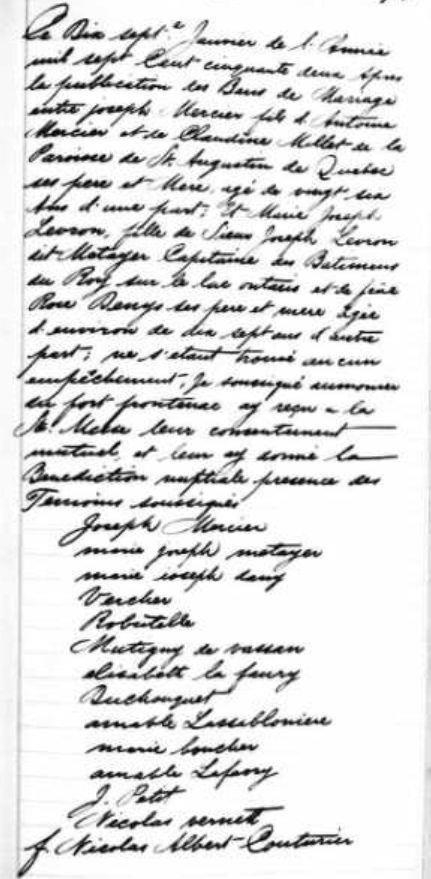 Le Dix sept.e Janvier de l'Année
mil sept Cent cinquante deux Apres
la publication des Bans de Mariage
entre joseph Mercier fils d'Antoine
Mercier et de Claudine Millet de la
Paroisse de St. Augustin de Quebec
ses pere et Mere, agé de vingt six
Ans d'une part; Et Marie Joseph
Levron, fille de Sieur Joseph Levron
dit Metayer Capitaine des Batimens
du Roy sur le lac ontario et de feue
Rose Denys ses pere et mere agée
d'environ de dix sept ans d'autre
part; ne s'etant trouvé aucun
empêchement, Je soussigné aumonier
du fort frontenac ay reçu a la
Ste. Messe leur consentement
mutuel, et leur ay donné la
Benediction nuptiale presence des
Temoins soussignés
Joseph Mercier
marie joseph metayer
marie ioseph
Vercher
Robutelle
Mutigny de vassan
elisabett la feury
Duchouquet
amable Lasabloniere
marie boucher
amable
J. Petit
Nicolas vernett
f. Nicolas Albert Couturier